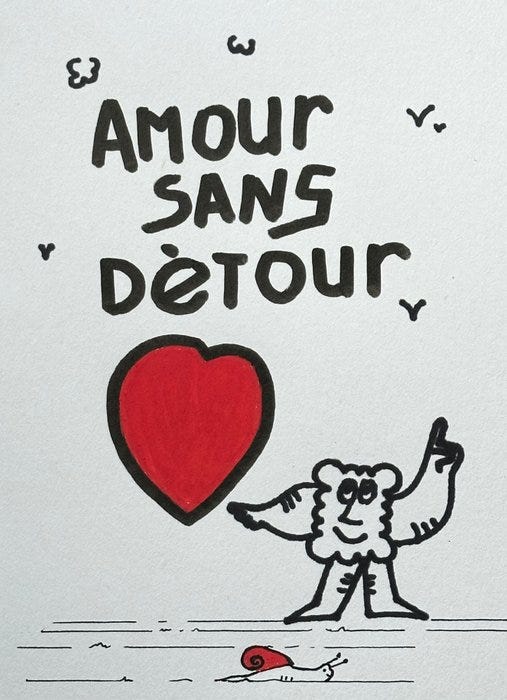 AMOUR
SANS
DèTOUR